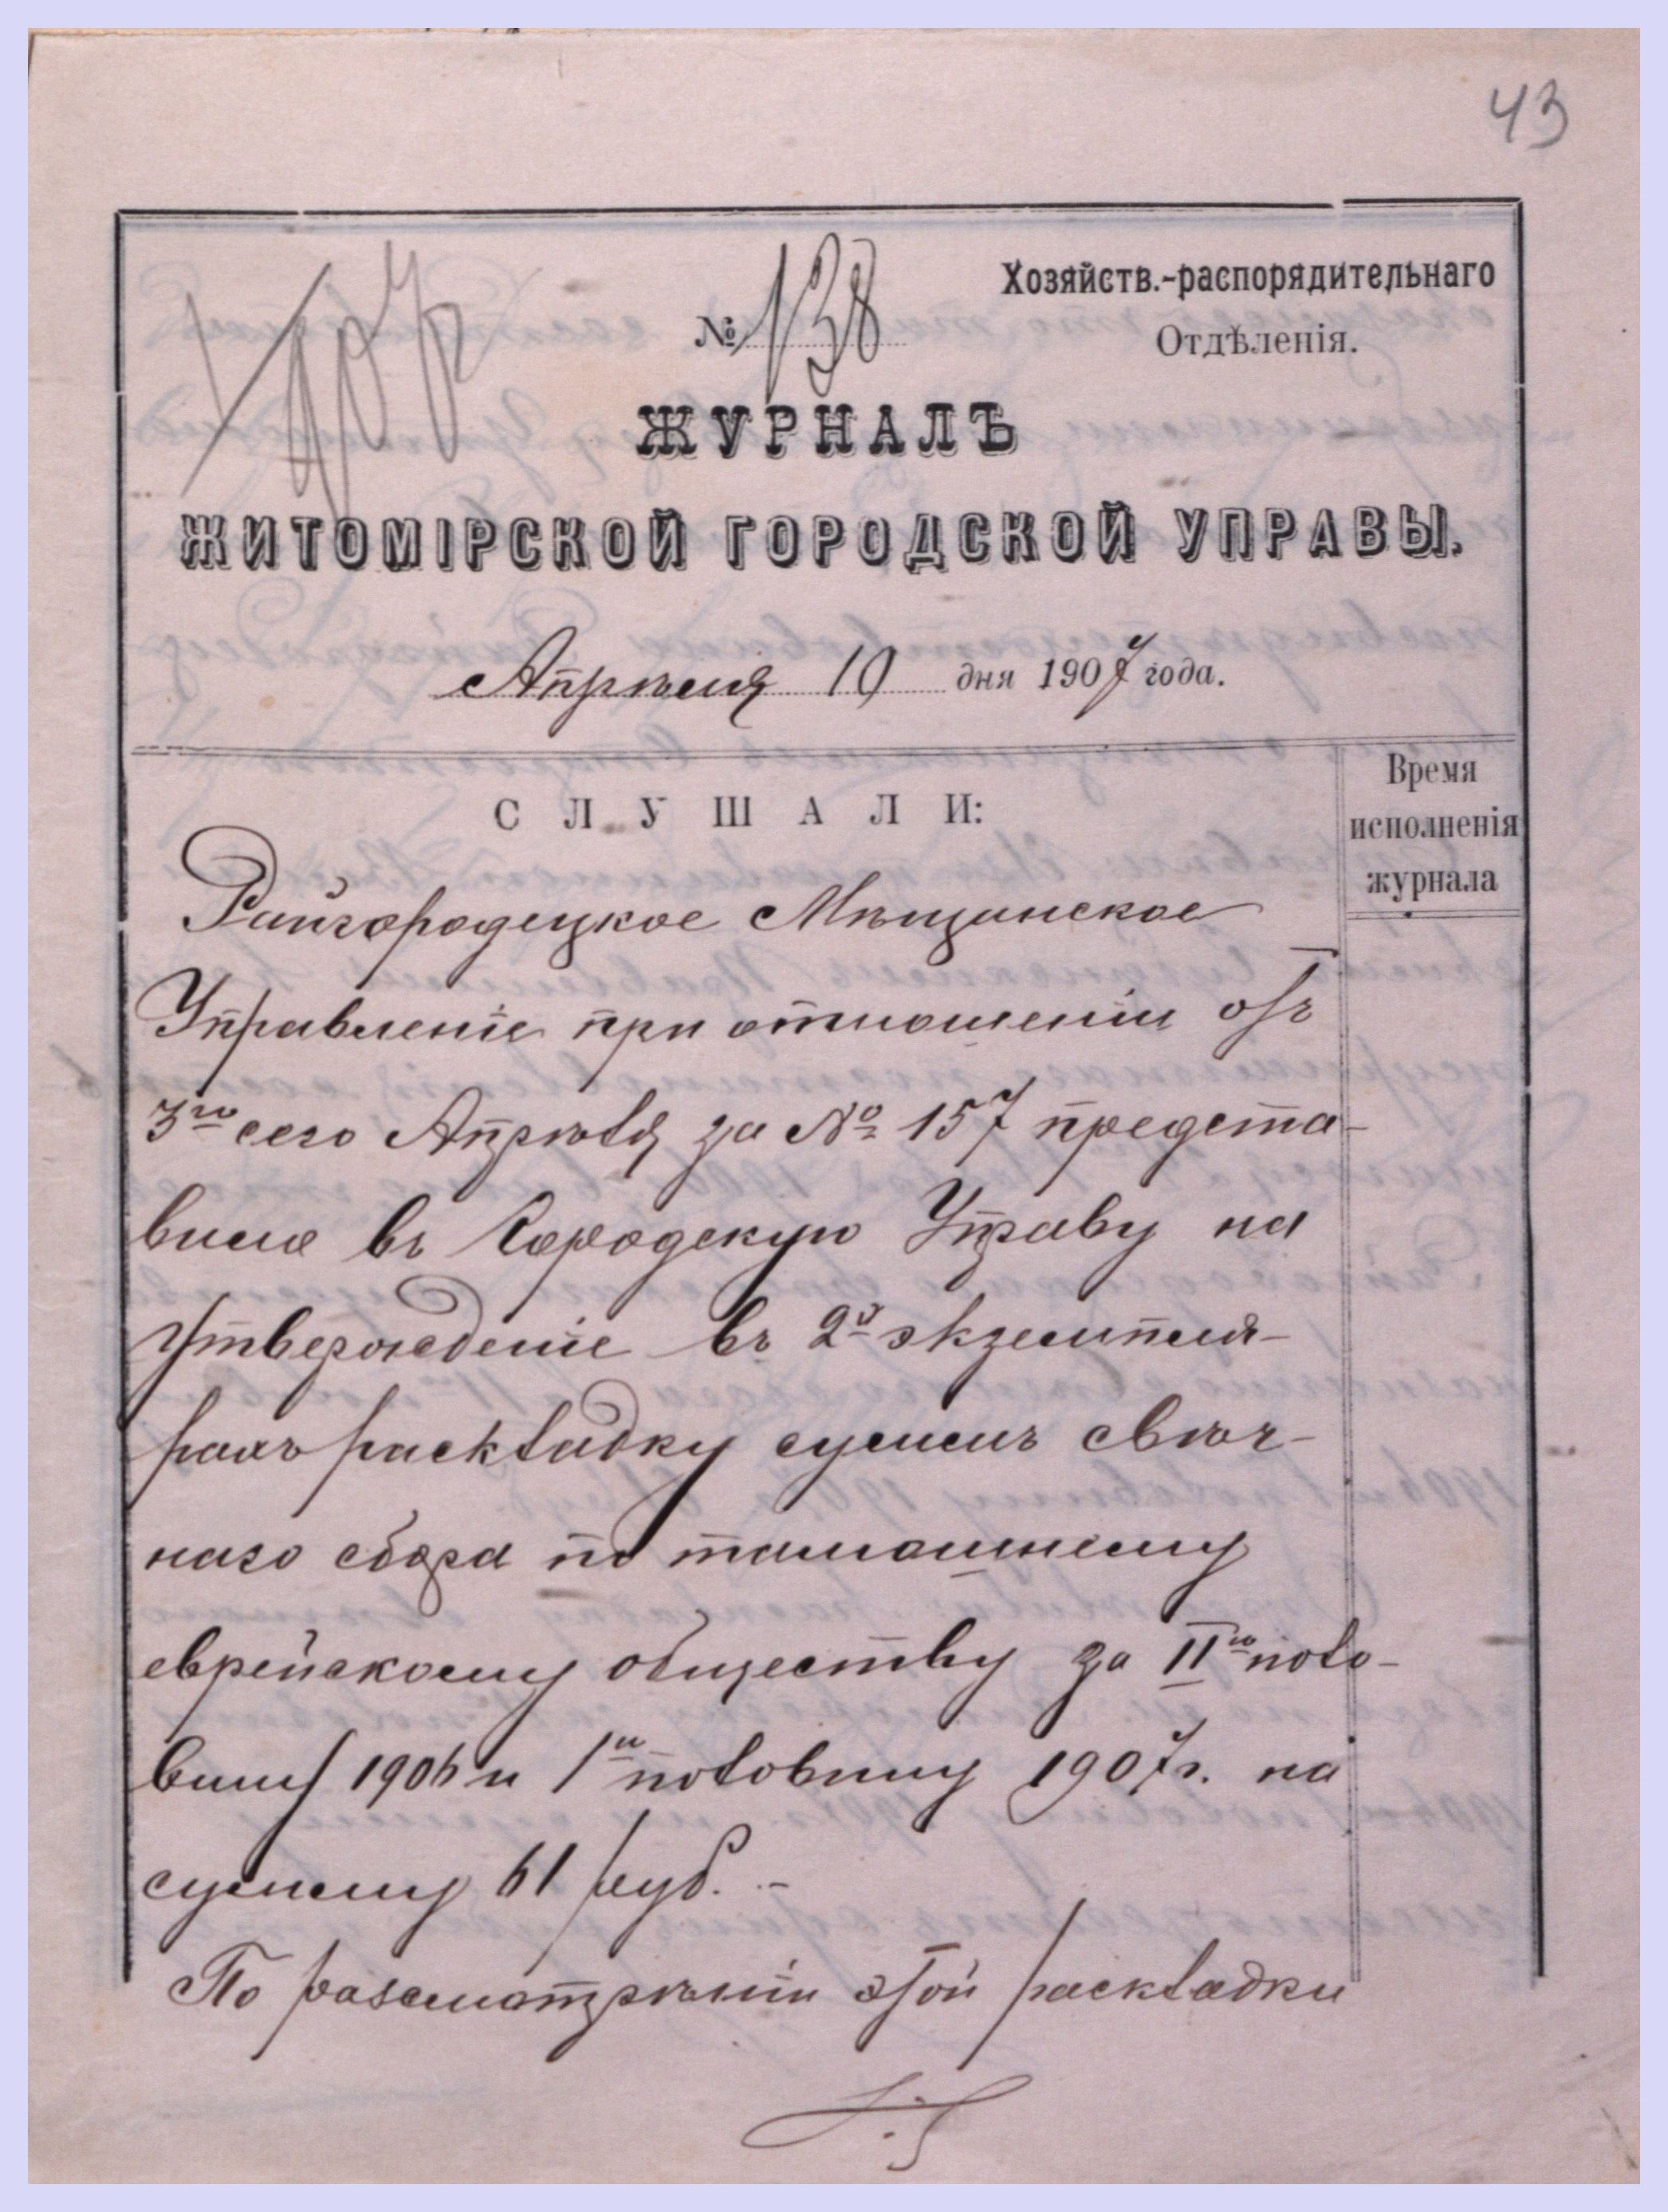 43
№ 138
Хозяйств.-распорядительнаго
Отдѣленія.
ЖУРНАЛЪ
ЖИТОМІРСКОЙ ГОРОДСКОЙ УПРАВЫ.
Апрѣля 10 дня 1907 года.
СЛУШАЛИ:
Время
исполненія
журнала
Райгородецкое Мѣщанское
Управленіе при отношеніи отъ
3го сего Апрѣля за № 157 предста-
вило въ Городскую Управу на
утвержденіе въ 2х экземпля-
рахъ раскладку суммъ свѣч-
наго сбора по тамошнему
еврейскому обществу за IIю поло-
вину 1906 и 1ю половину 1907 г. на
сумму 61 руб. -
По разсмотрѣніи этой раскладки